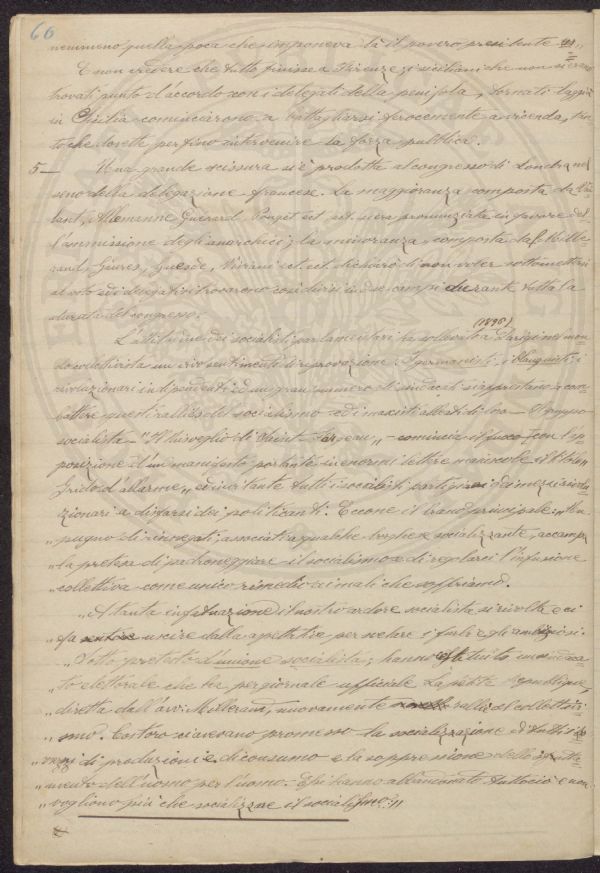 66
nemmeno quella epoca che imponeva là il povero presidente
E non credere che tutto finisse a Firenze; i siciliani che non si erano
trovati punto d'accordo con i delegati della penisola, tornati laggiù
in Sicilia cominciarono a battagliarsi ferocemente a vicenda, tan
to che dovette perfino intervenire la forza pubblica.
5 — Una grande scissura si è prodotta al congresso di Londra nel
seno della delegazione francese. La maggioranza composta da Vail
lant, Allemenne Guerard, Pouget ect. ect. si era pronunziata in favore del
l'ammissione degli anarchici; la minoranza, composta da Mille
rand, Giures, Guesde, Viviani ect. ect. dichiarò di non voler sottomettersi
al voto ed i delegati si trovarono così divisi in due campi durante tutta la
durata del congresso.
(1896)
L'attitudine dei socialisti parlamentari ha sollevato a Parigi nel mon
do socialista un vivo sentimento di riprovazione. I germanisti, i blanquisti, i
rivoluzionari indipendenti ed un gran numero di sindacati si apprestano a com
battere questi ralliés del socialismo ed i marxisti alleati di loro — Il gruppo
socialista — "Il Risveglio di Saint-Fargeau" — comincia il fuoco con l'ap
posizione d'un manifesto portante in enormi lettere maiuscole
Grido d'allarme" ed incitante tutti i socialisti partigiani dei mezzi rivolu
zionari a disfarsi dei politicanti. Eccone il brano principale: "Un
"pugno di rinnegati, associati a qualche borghese socializzante, accampa
"la pretesa di padroneggiare il socialismo e di regolarci l'infusione
"collettiva come unico rimedio ai mali che soffriamo.
"A tanta infatuazione il nostro ardore socialista si rivolta e ci
"fa sentire uscire dalla per svelare i furbi e gli ambiziosi.
"Sotto pretesto d'unione socialista, hanno un sindaca
to elettorale che ha per giornale ufficiale La petite Republique,
diretta dall'avv. Millerand, nuovamente rallié al collettivi
smo. Costoro ci avevano promesso la socializzazione di tutti i me
"zzi di produzione e di consumo e la soppressione dello sfrutta
mento dell'uomo per l'uomo. Essi hanno abbandonato tuttociò e non
"vogliono più che socializzare il socialismo."